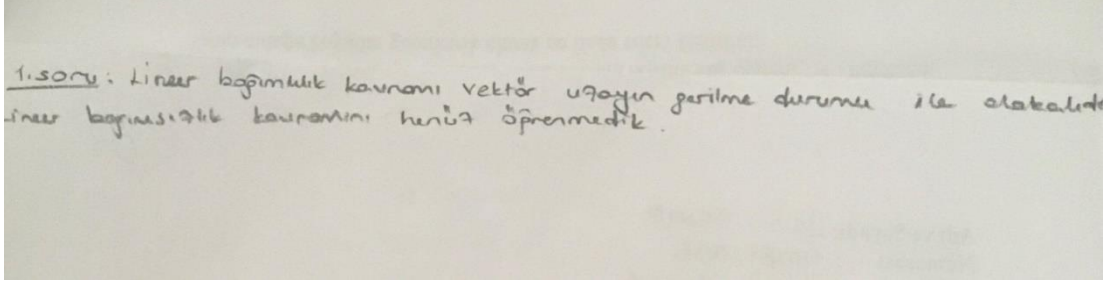 1.soru: Lineer bağımlılık kavramı vektör uzayın gerilme durumu ile alakalıdı
Lineer bağımsızlık kavramını henüz öğrenmedik.